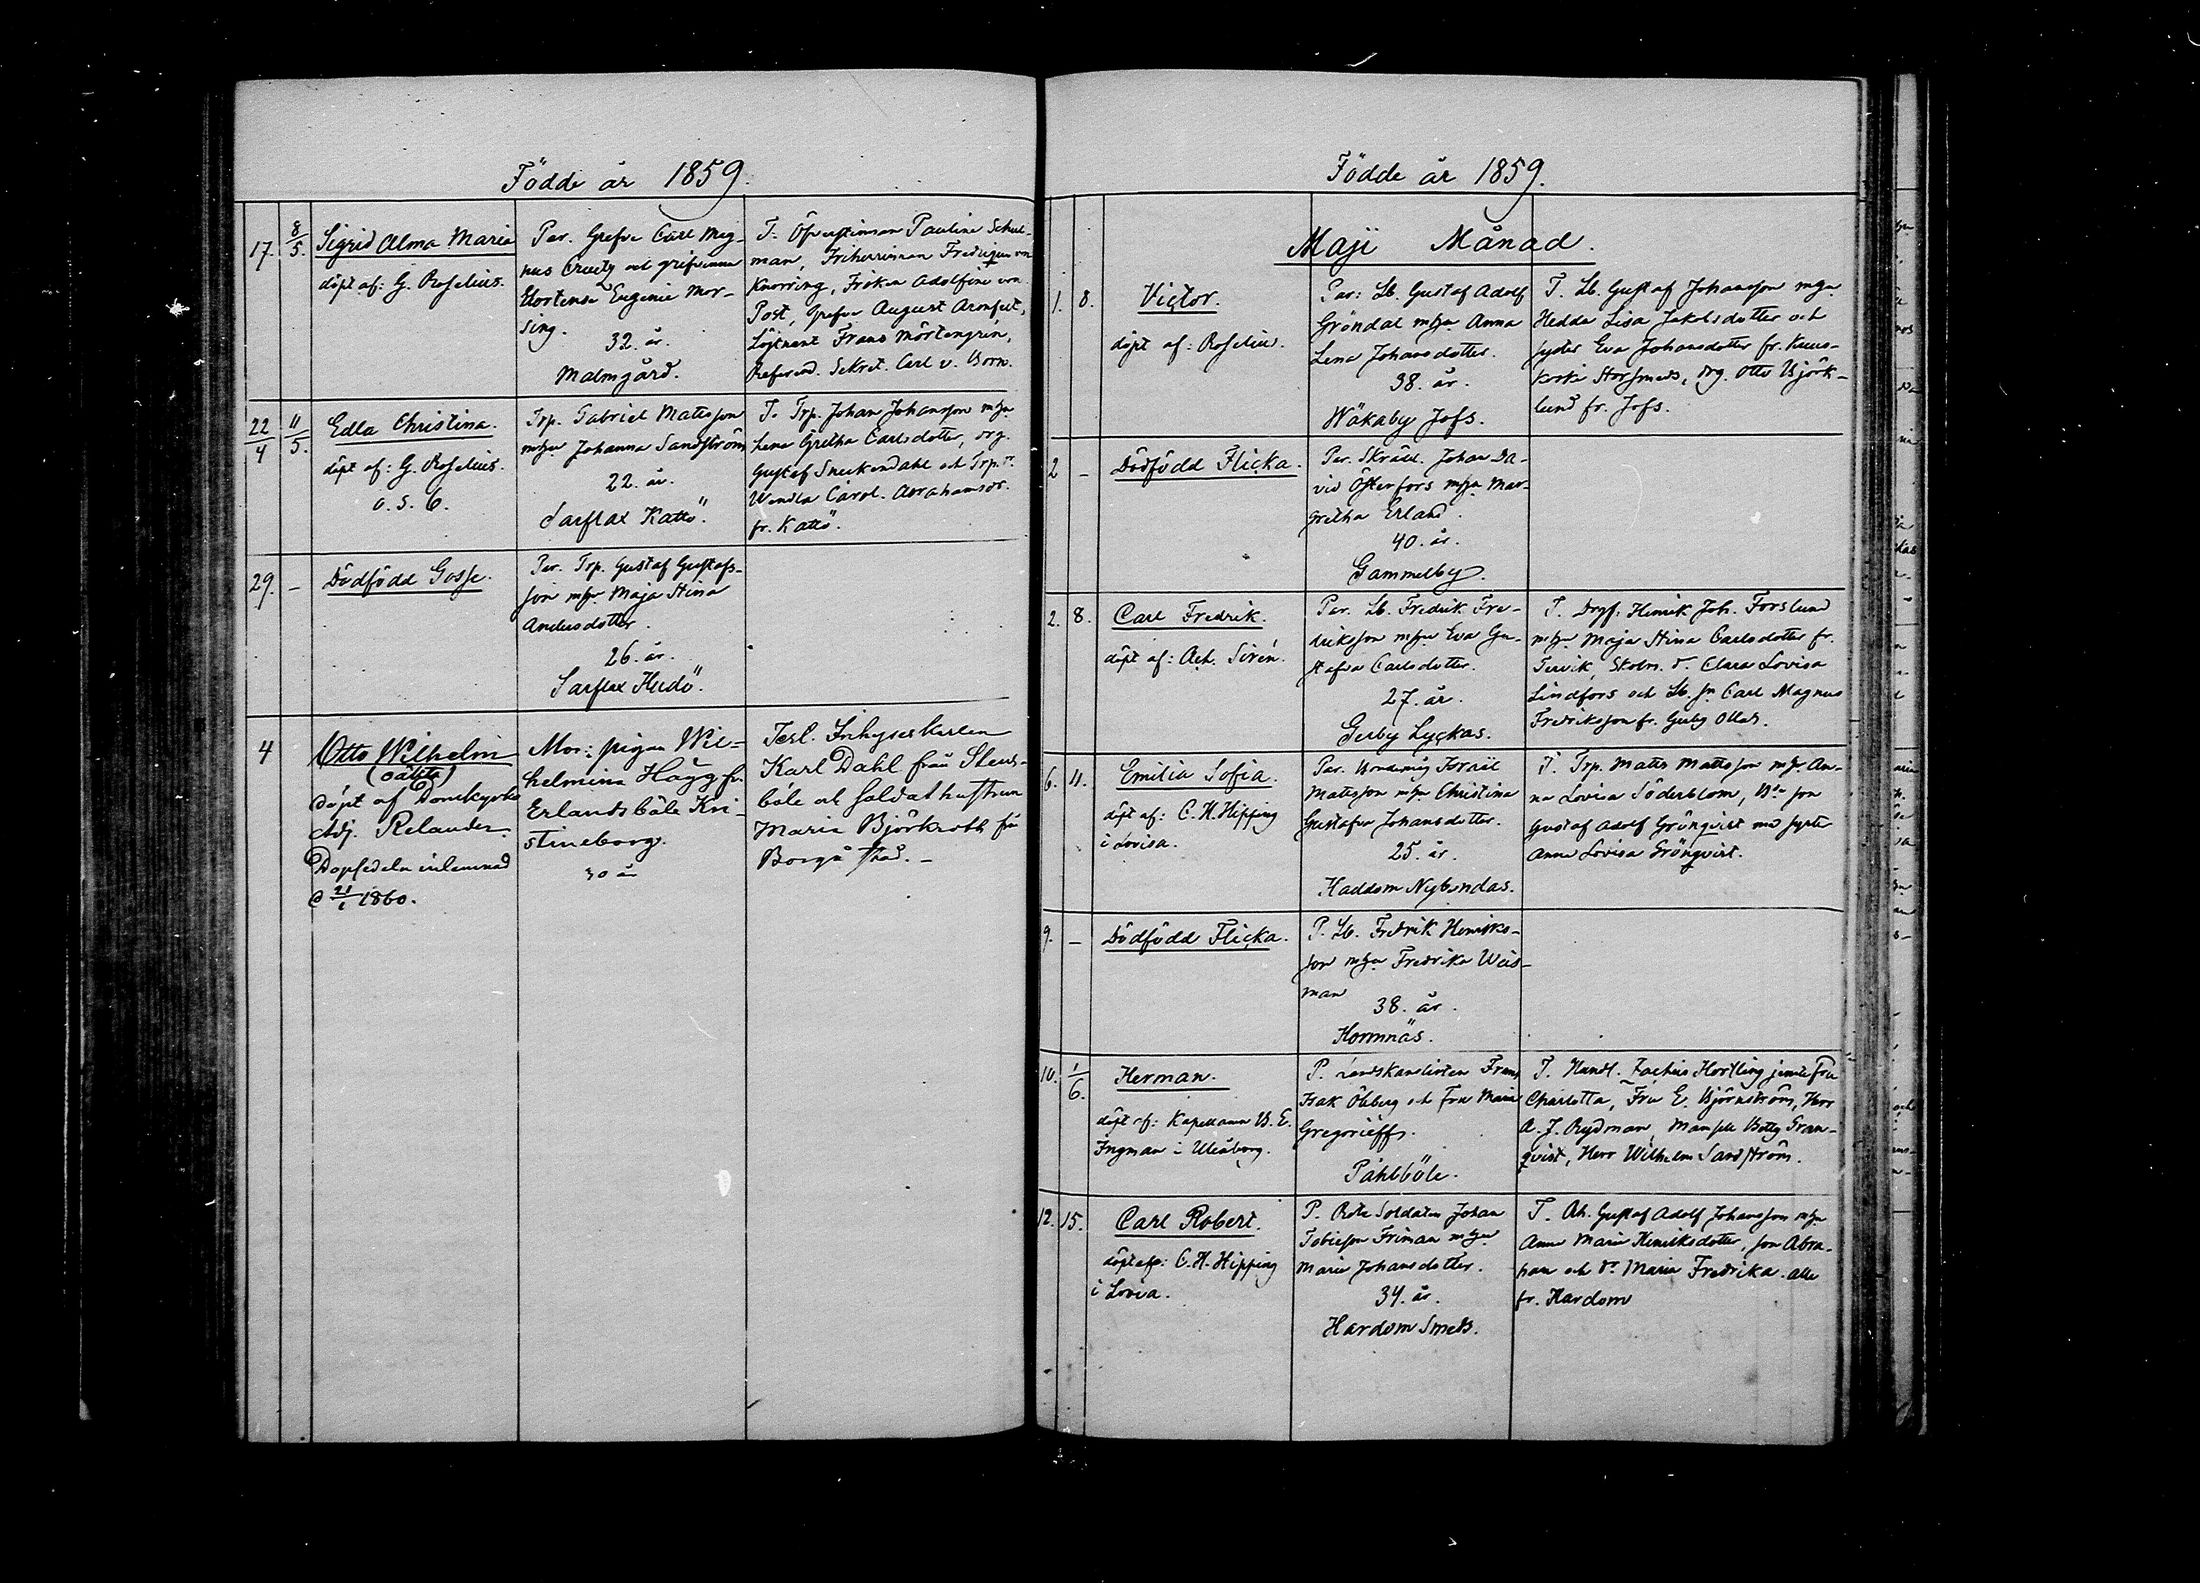 Födde år 1859.
17. 8/5. Sigrid Alma Maria
döpt af: G. Roselius.
Par. Grefve Carl Mag-
nus Creutz och grefvinna
Hortense Eugenie Mör-
sing.
32. år.
Malmgård.
T. Öfverstinnan Pauline Schul-
man, Friherrinnan Fredrique von
Knorring, Fröken Adolfine von
Post, Grefve August Armfelt,
Löjtnant Frans Mörtengrén,
Referend. Sekret. Carl v. Born.
22/4 11/5. Edla Christina.
döpt af: G. Roselius.
o. s. 6.
Trp. Gabriel Matsson
mhu Johanna Sandström
22. år.
Sarflax Kattö.
T. Trp. Johan Johansson mhu
Lena Gretha Carlsdotter, drg.
Gustaf Sneckendahl och Trp. dr.
Wendla Carol. Abrahamsdr.
fr. Kattö.
29. – Dödfödd Gosse.
Par. Trp. Gustaf Gustafs-
son mhu Maja Stina
Andersdotter.
26. år.
Sarflax Hudö.
4 Otto Wilhelm
(oäkta)
döpt af Domkyrko
Adj. Relander.
Dopsedeln inlemnad
d 21/1 1860.
Mor: pigan Wil-
helmina Hägg fr.
Erlandsböle Kri-
stineborg.
30 år
Test. Inhyseskarlen
Karl Dahl från Stens-
böle och Soldathustrun
Maria Björkroth från
Borgå stad. –
Födde år 1859.
Maji Månad.
1. 8. Victor.
döpt af: Roselius.
Par: Lb. Gustaf Adolf
Gröndal mhu Anna
Lena Johansdotter.
38. år.
Wåkaby Jofs.
T. Lb. Gustaf Johansson mhu
Hedda Lisa Jakobsdotter och
syster Eva Johansdotter fr. Kuus-
koski Storsmeds, drg. Otto Björk-
lund fr. Jofs.
2 – Dödfödd Flicka.
Par. Skrädd. Johan Da-
vid Österfors mhu Mar-
gretha Erland.
40. år.
Gammelby.
2. 8. Carl Fredrik.
döpt af: Ad. Sirén.
Par. Lb. Fredrik Fre-
driksson mhu Eva Gu-
stafva Carlsdotter.
27. år.
Gerby Lyckas.
T. Drgf. Henrik Joh. Forslund
mhu Maja Stina Carlsdotter fr.
Tervik, Skolm. d. Clara Lovisa
Lindfors och Lb. sn Carl Magnus
Fredriksson fr. Gerby Ollas.
6. 11. Emilia Sofia.
döpt af: C. H. Hipping
i Lovisa.
Par. Bondemåg Israël
Matsson mhu Christina
Gustafva Johansdotter.
25. år.
Haddom Nybondas.
T. Trp. Matts Mattsson mhu An-
na Lovisa Söderblom, Bde son
Gustaf Adolf Grönqvist med syster
Anna Lovisa Grönqvist.
9. – Dödfödd Flicka.
P. Lb. Fredrik Henriks-
son mhu Fredrika Weis-
man
38. år.
Hormnäs.
10. 1/6. Herman.
döpt af: Kapellanen B. E.
Ingman i Uleåborg.
P. Landskanslisten Frans
Isak Öhberg och Fru Maria
Gregorieff.
Påhlböle.
T. Handl. Zachris Hortling jemte Fru
Charlotta, Fru E. Björnström, Herr
A. J. Rydman, Mamsell Betty Gran-
qvist, Herr Wilhelm Sandström.
12. 15. Carl Robert.
döpt af: C. H. Hipping
i Lovisa.
P. Rote Soldaten Johan
Tobiesson Friman mhu
Maria Johansdotter.
34. år.
Hardom Smeds.
T. Ab. Gustaf Adolf Johansson mhu
Anna Maria Henriksdotter, son Abra-
ham och dr Maria Fredrika. alla
fr. Hardom